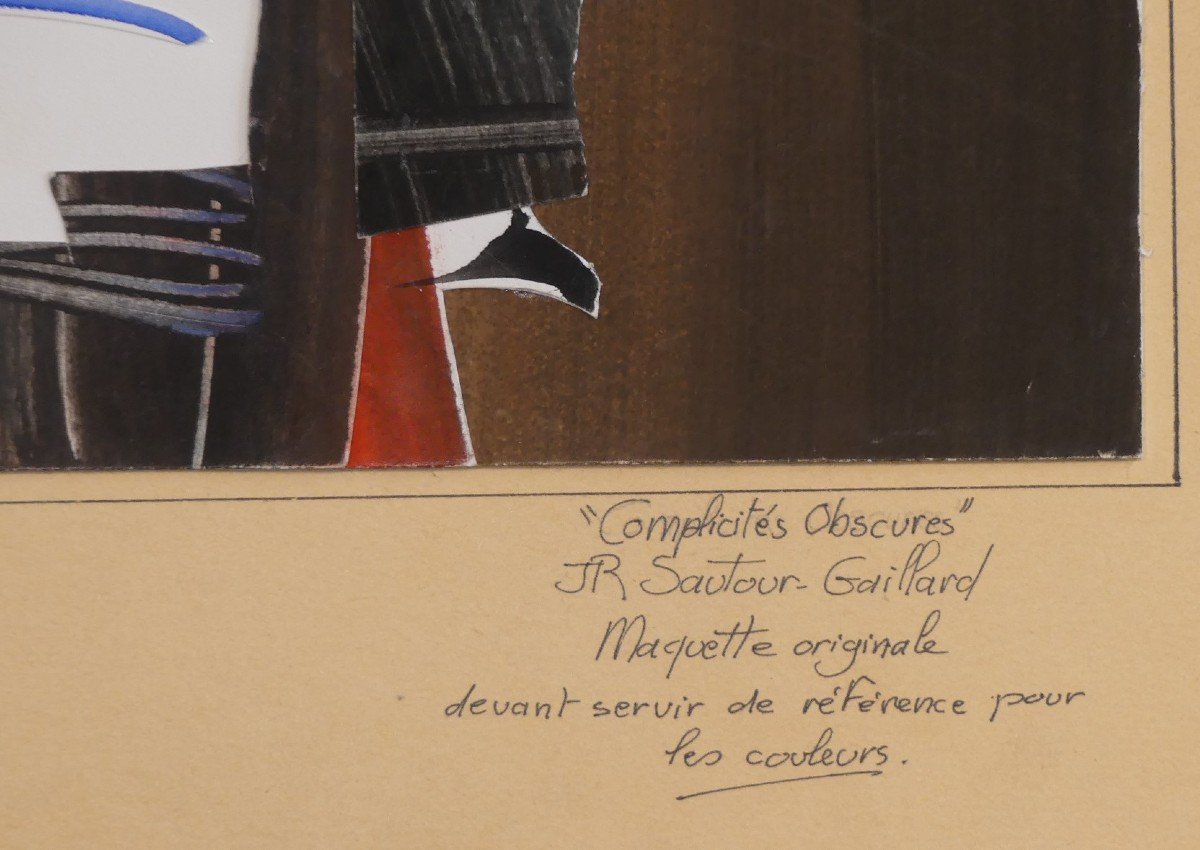 "Complicités Obscures"
JR Sautour-Gaillard
Maquette originale
devant servir de référence pour
les couleurs.